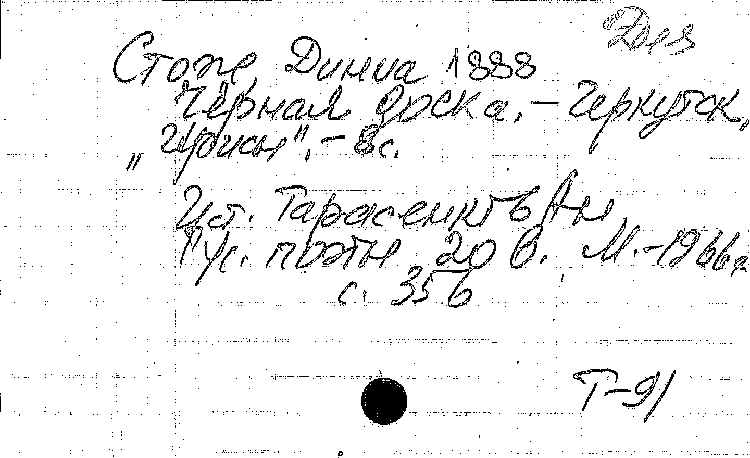 Стопе Динма 1888
Черная доска. – Черкутск,
„Ирисы". – 8с.
Ист. Тарасенков Ан
Рус. поэты 20 в. М. – 1966г
с. 356
Т-91